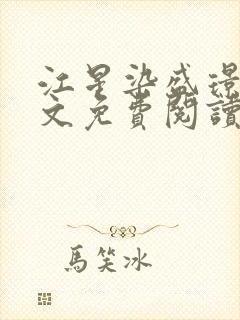 江星染盛璟
文免費閱讀
馬笑冰